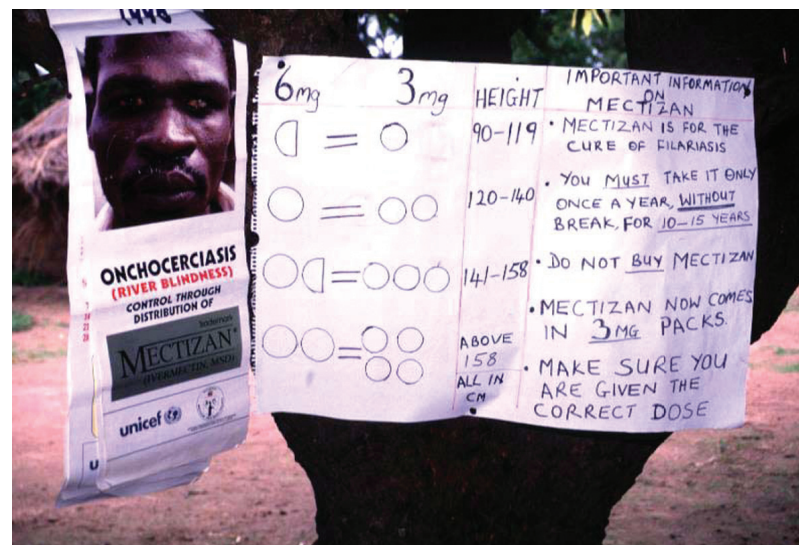 1998
ONCHOCERCIASIS
(RIVER BLINDNESS)
CONTROL THROUGH
DISTRIBUTION OF
MECTIZAN
(IVERMECTIN, MSD)
unicef
U
6mg 3mg HEIGHT
= 90-119
= 120-140
= 141-158
= ABOVE
158
ALL IN
CM
IMPORTANT INFORMATION
ON
MECTIZAN
• MECTIZAN IS FOR THE
CURE OF FILARIASIS
• YOU MUST TAKE IT ONLY
ONCE A YEAR, WITHOUT
BREAK, FOR 10-15 YEARS
• DO NOT BUY MECTIZAN
• MECTIZAN NOW COMES
IN 3MG PACKS.
• MAKE SURE YOU
ARE GIVEN THE
CORRECT DOSE